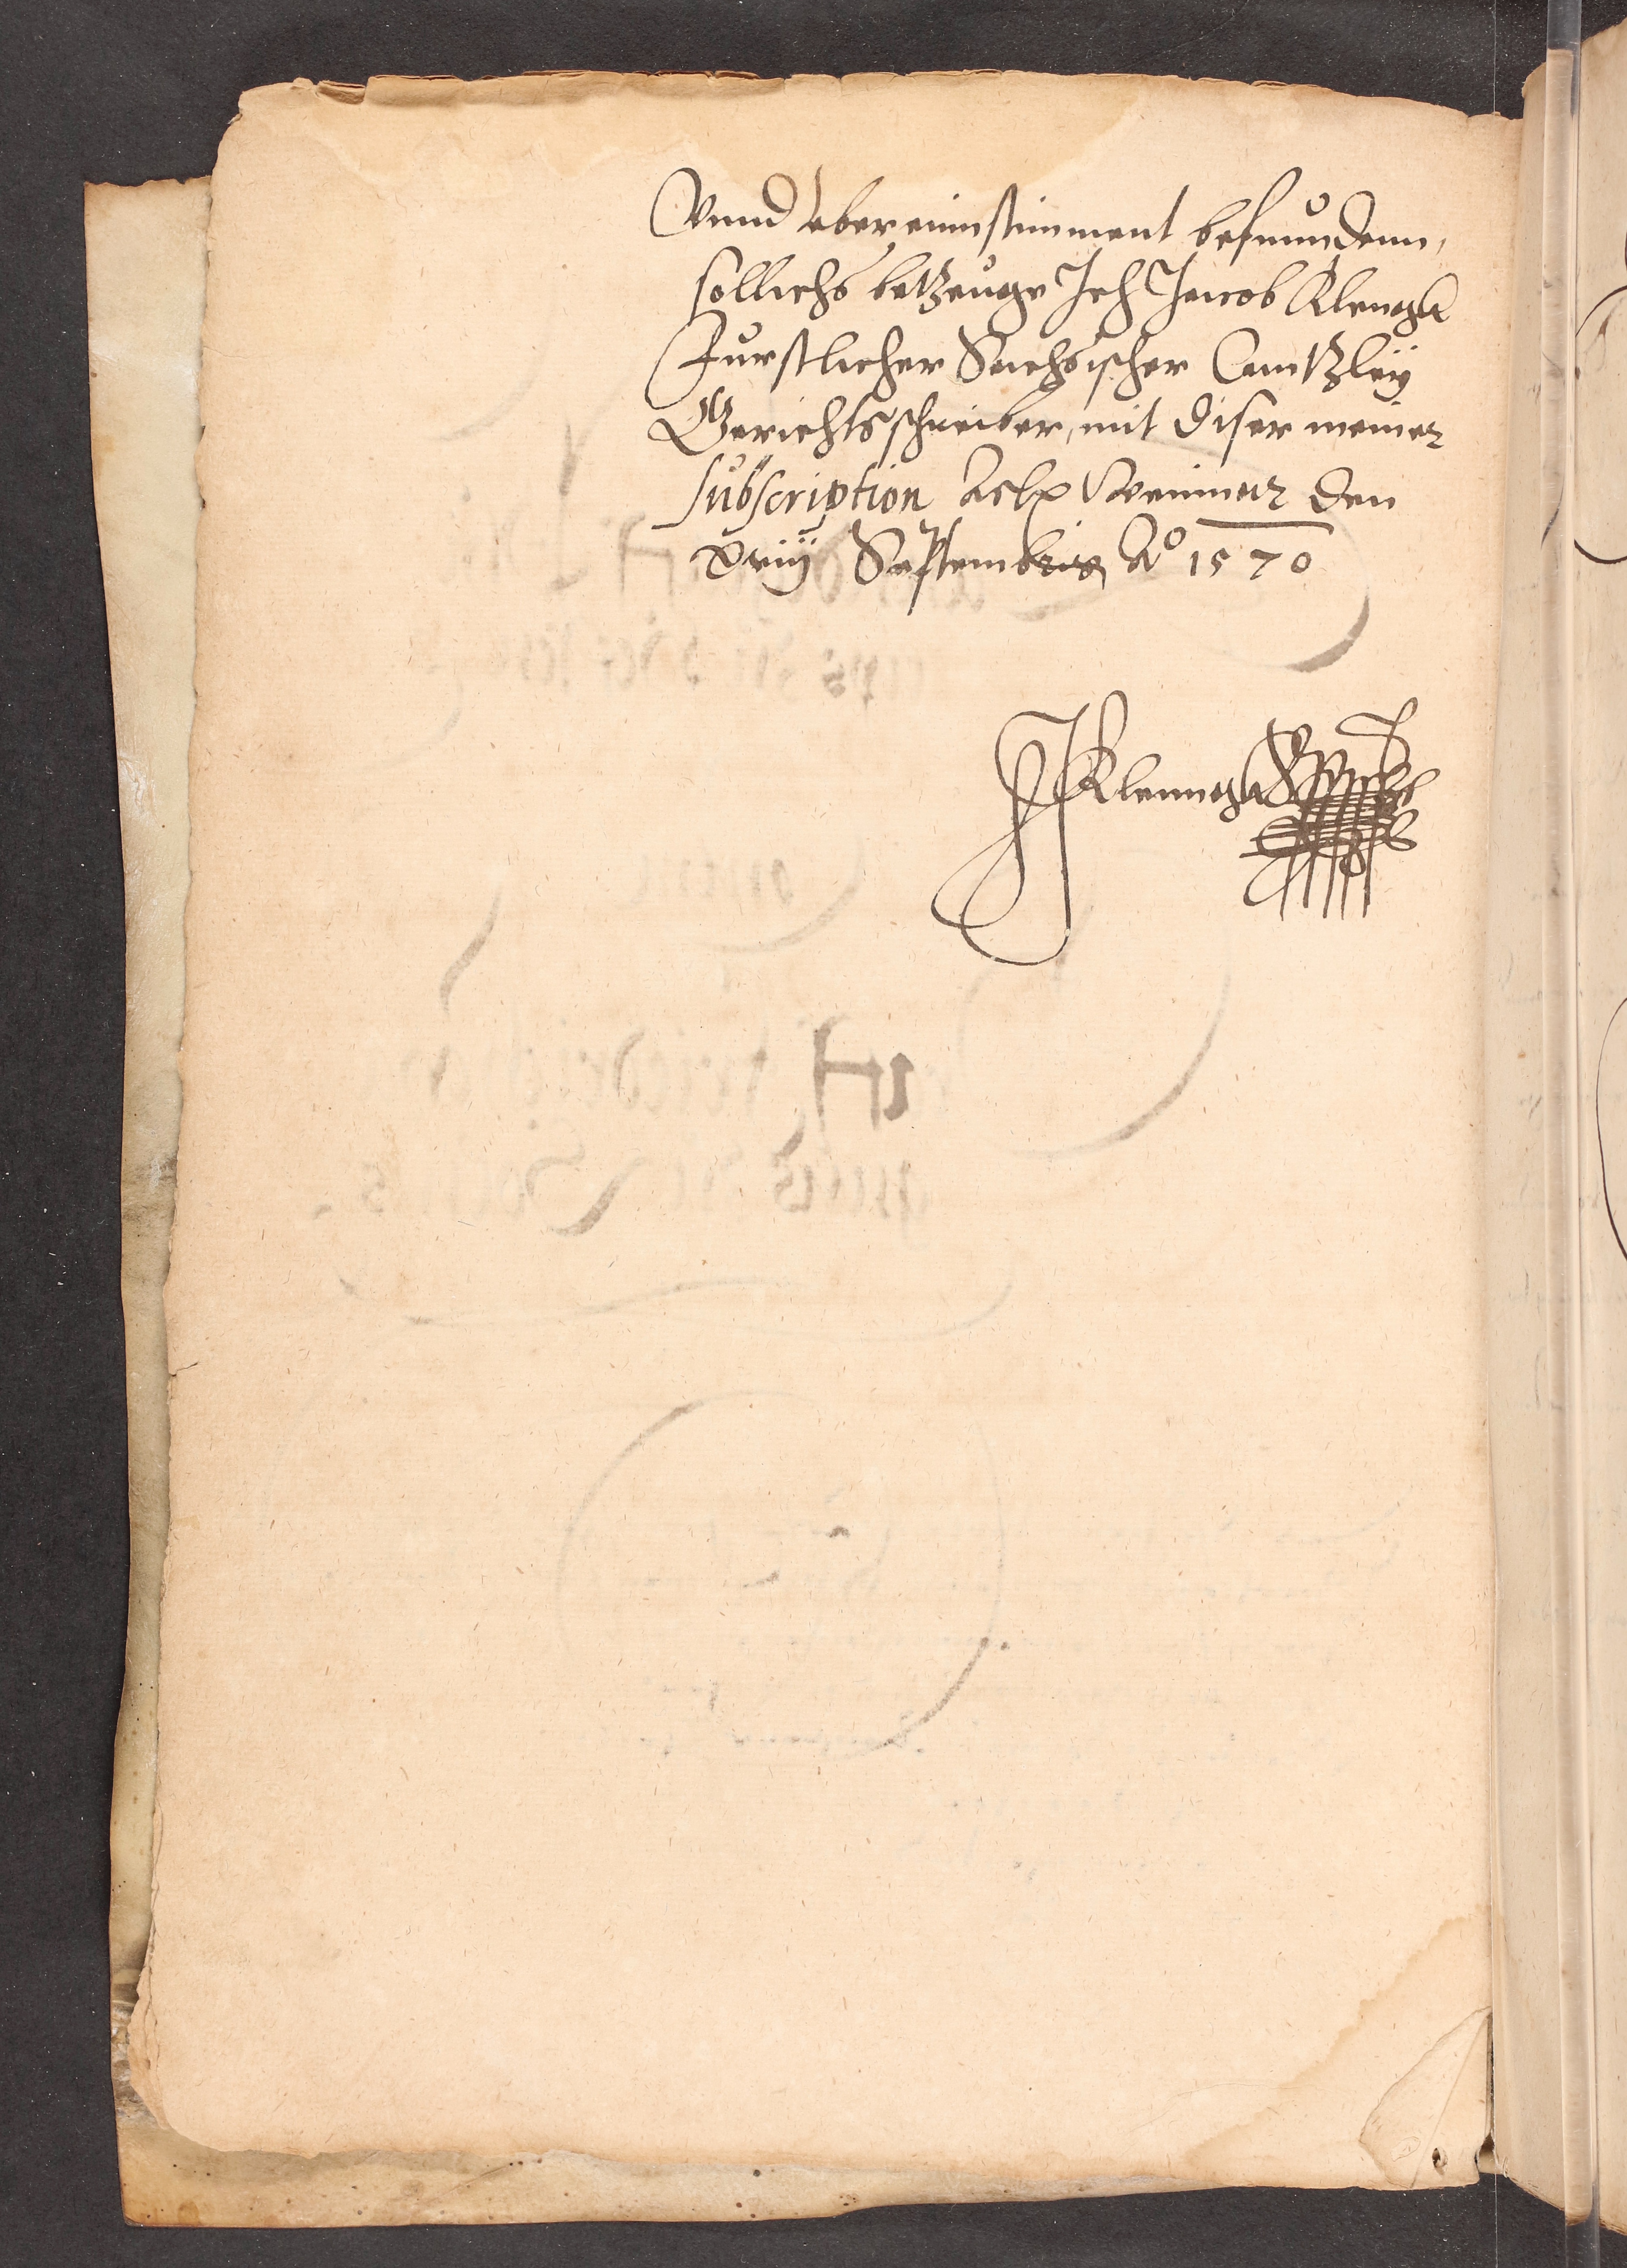 Vnnd vbereinnstimment befunndenn,
sollichs betzeuge Ich Jacob Klenngk
Furstlicher Sechsischer Cantzley
Gerichtsschreiber, mit diser meiner
subscription Actum Weimar den
xviij Septembris Ao 1570
JKlenngk